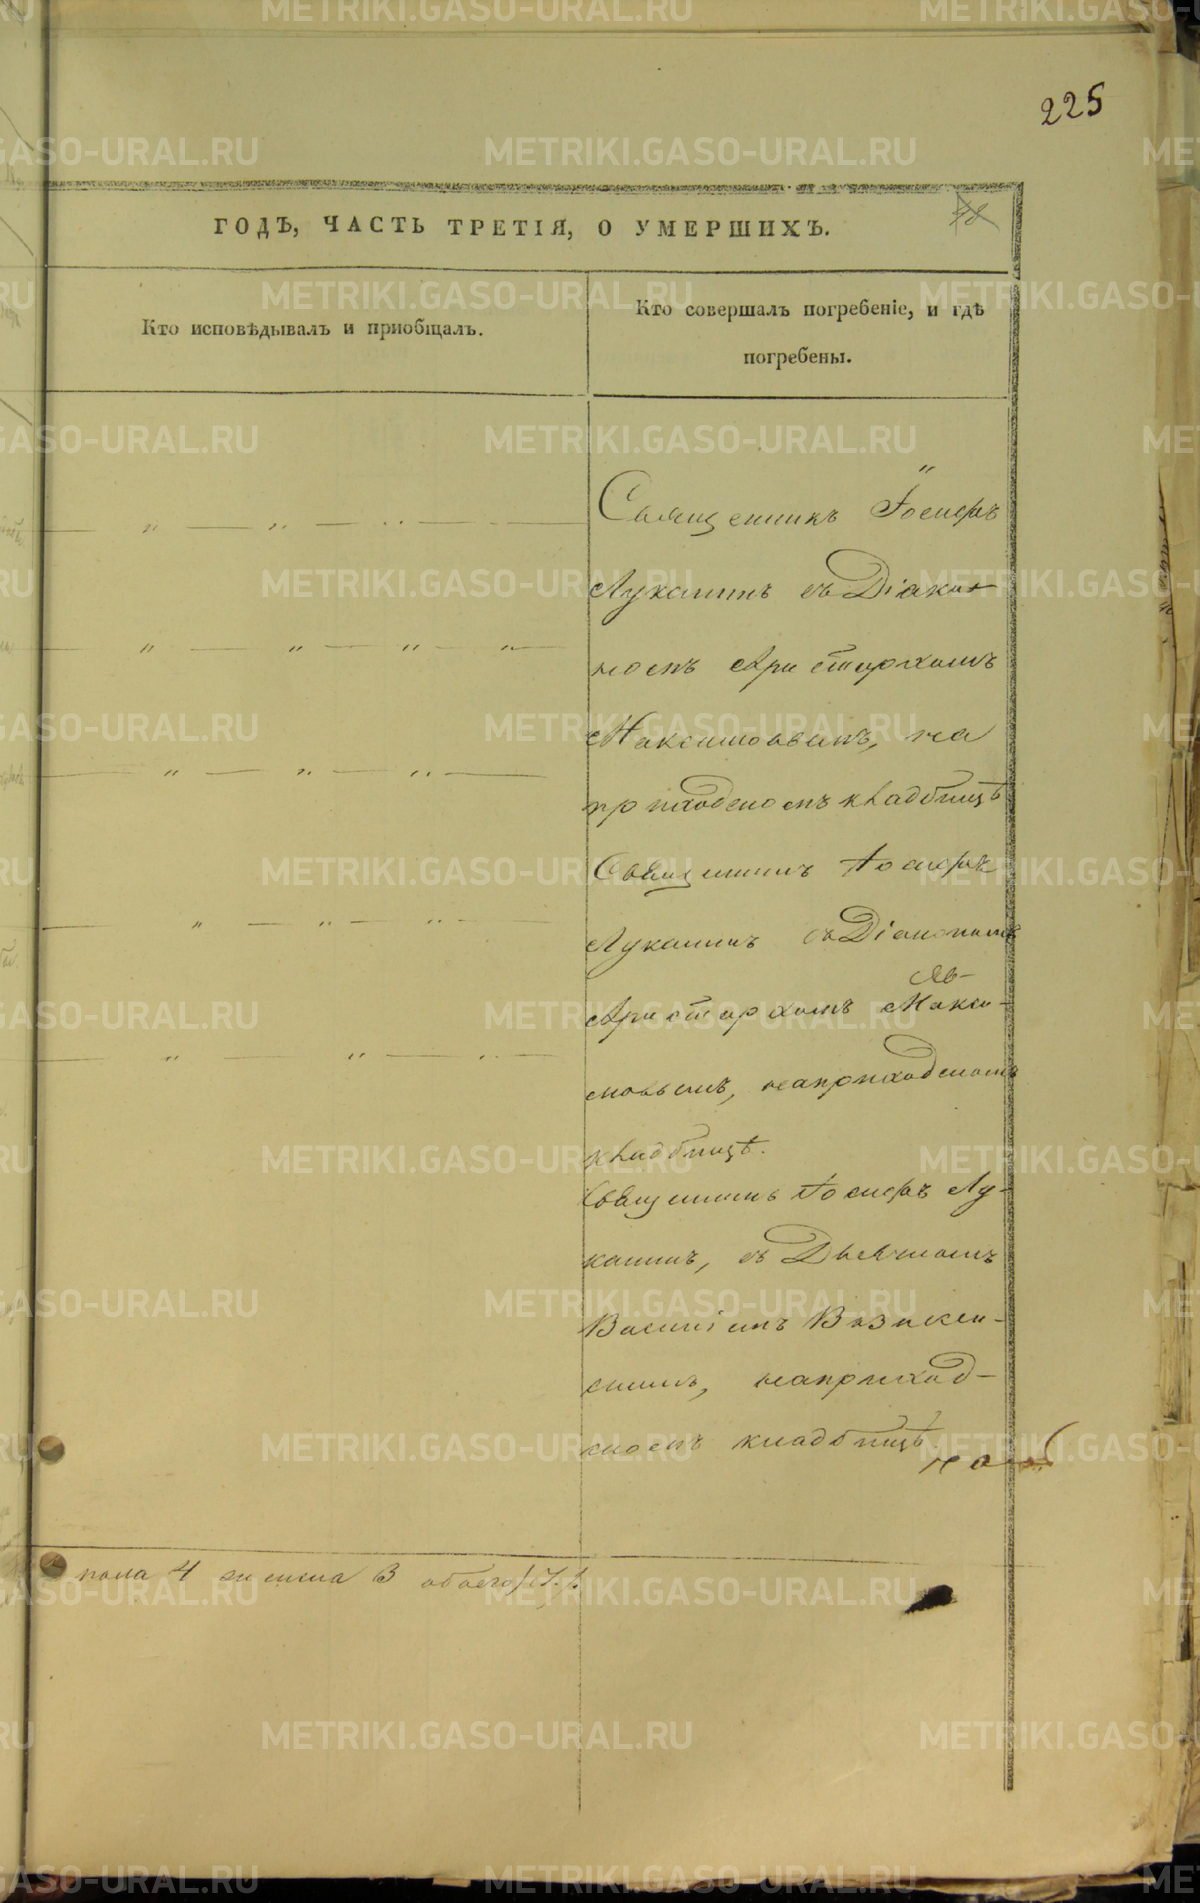 225
ГОДЪ, ЧАСТЬ ТРЕТІЯ, О УМЕРШИХЪ.
Кто исповѣдывалъ и пріобщалъ.
Кто совершалъ погребеніе, и гдѣ
погребены.
Священникъ Іосифъ
Лукашинъ съ Діако-
номъ Аристархомъ
Максимовымъ, на
приходскомъ кладбищѣ
Священникъ Іосифъ
Лукашинъ съ Діакономъ
Аристархомъ Макси-
мовымъ, на приходскомъ
кладбищѣ.
Священникъ Іосифъ Лу-
кашинъ, съ Дьячкомъ
Василіемъ
скимъ, на приход-
скомъ кладбищѣ
пола 4 женска 3 обоего 7.
METRIKI.GASO-URAL.RU